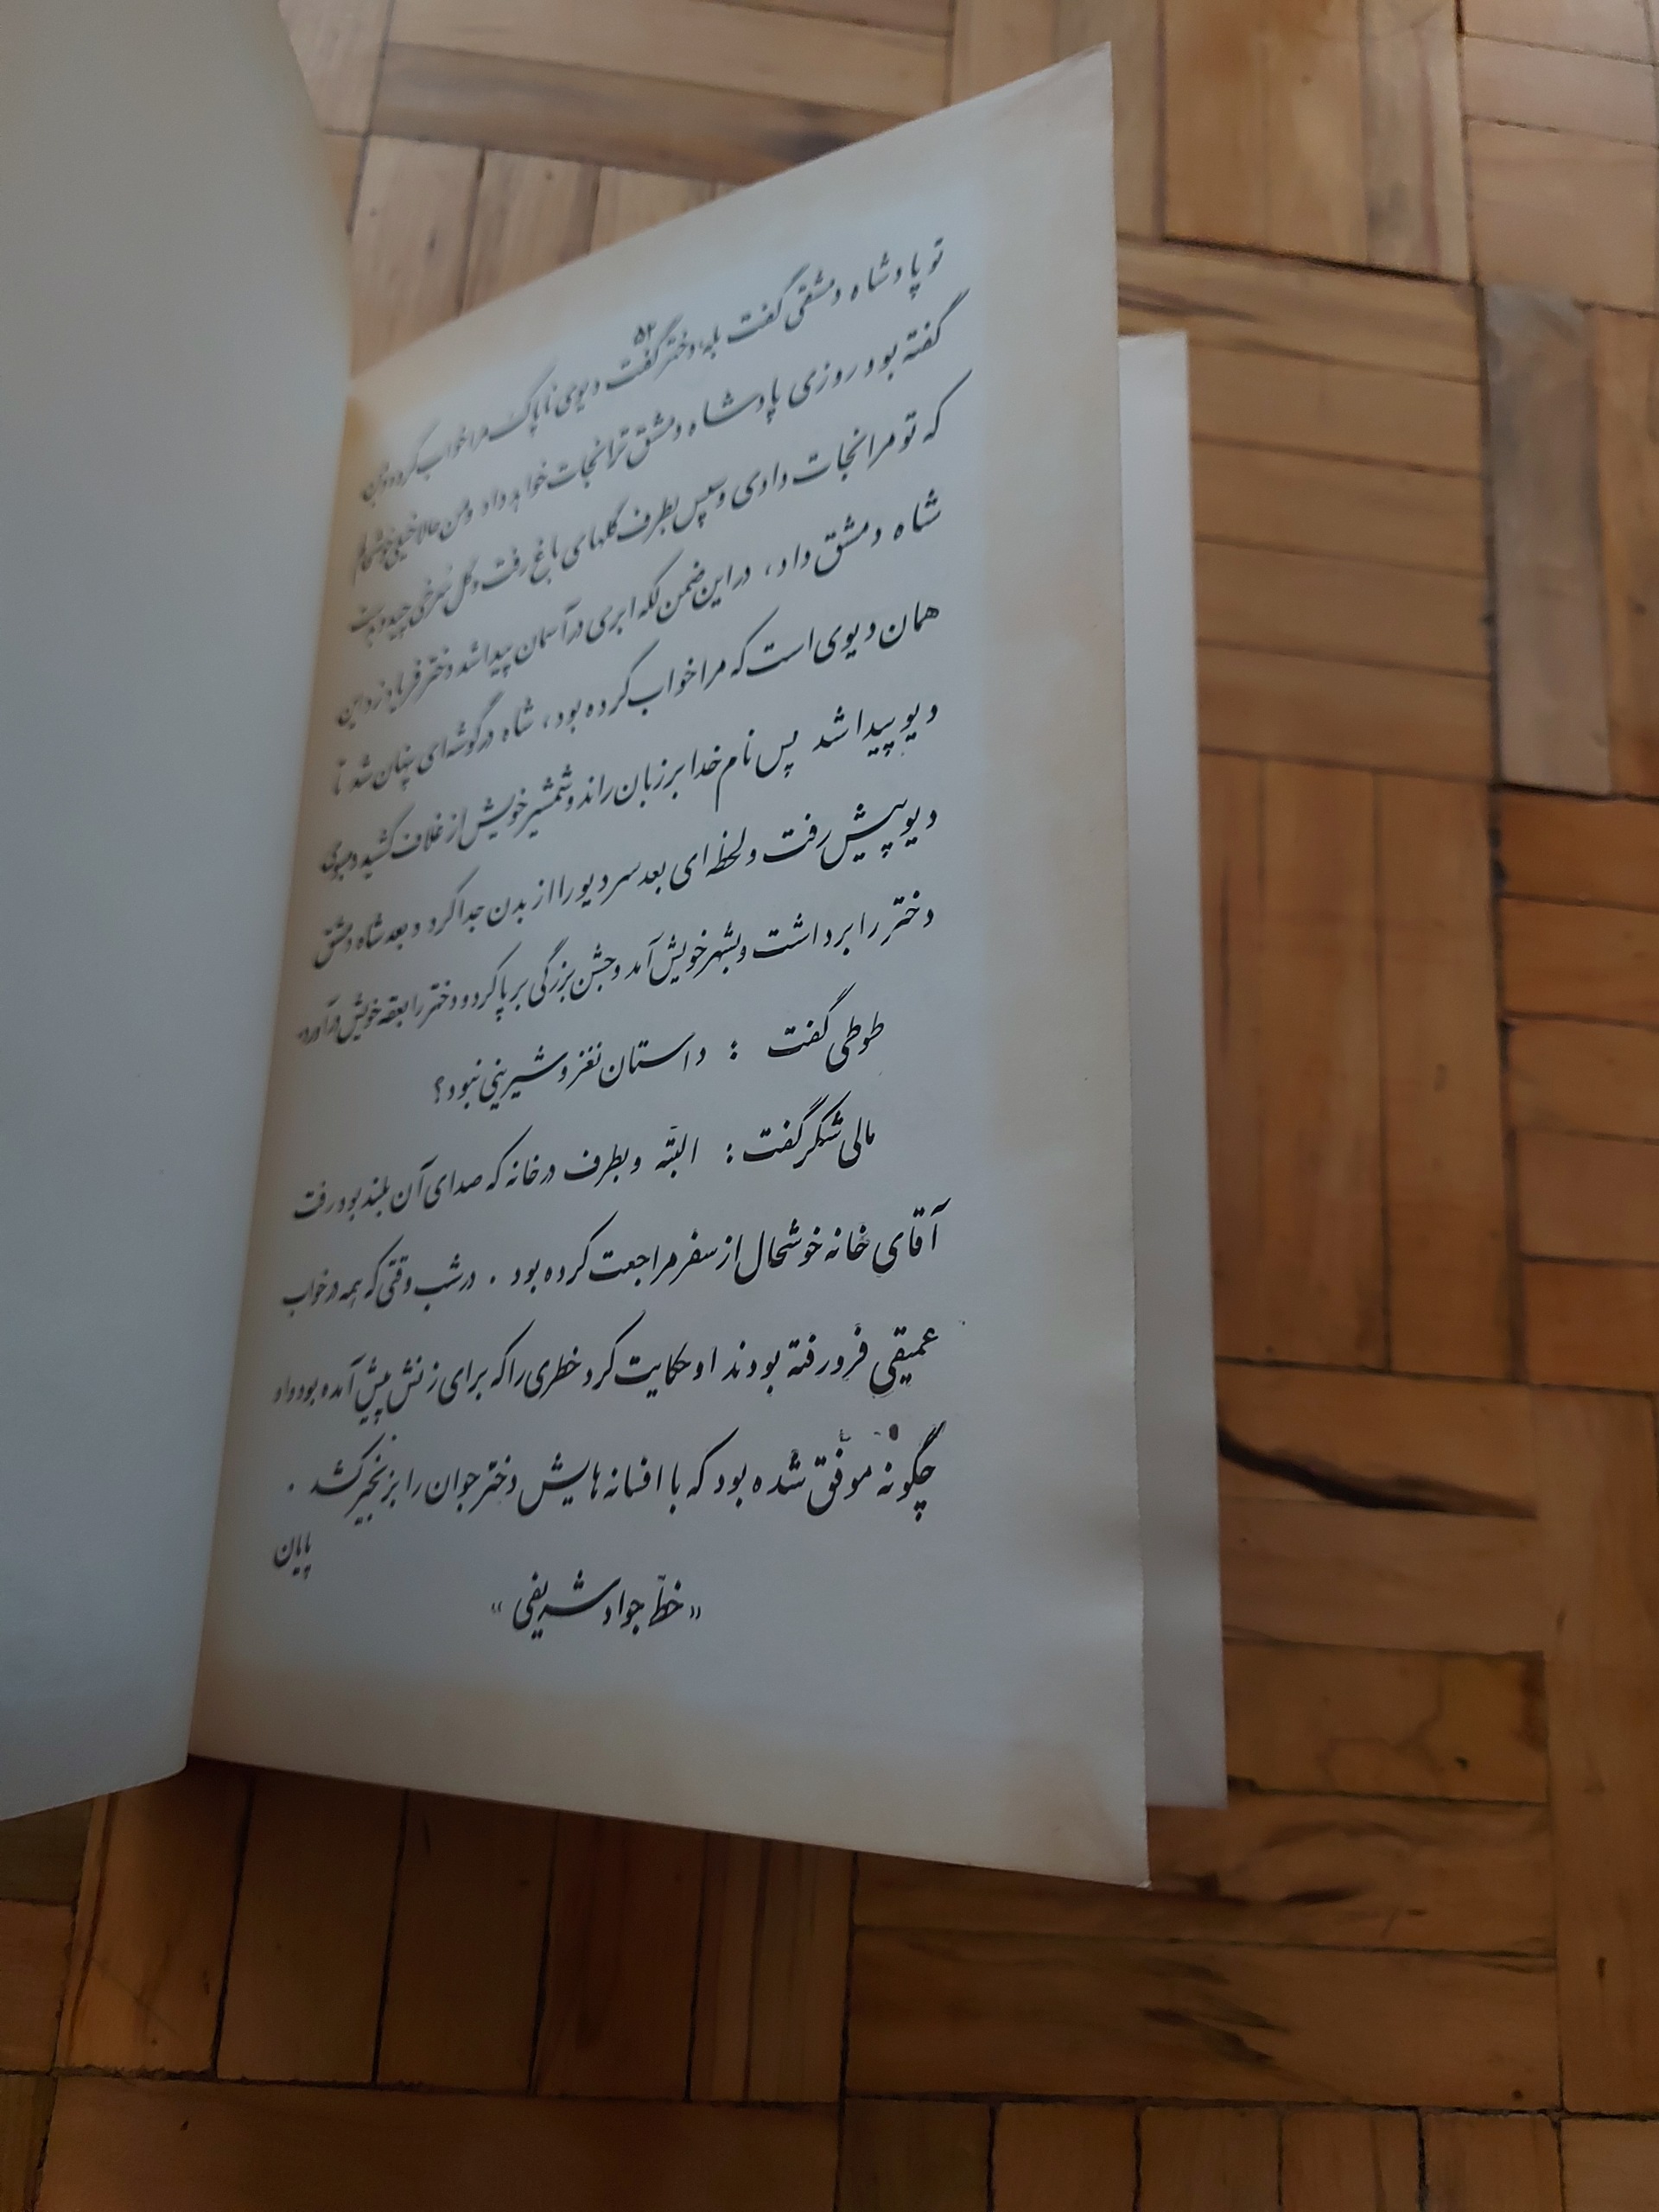 ۵۲
تو پادشاه دمشقی گفت بله، دختر گفت دیوی ناپاک مرا خواب کرد و بمن
گفته بود روزی پادشاه دمشق ترا نجات خواهد داد و من حالا خیلی خوشحالم
که تو مرا نجات دادی و سپس بطرف گلهای باغ رفت و گل سرخی چید و به
شاه دمشق داد، در این ضمن لکه ابری در آسمان پیدا شد دختر فریاد زد این
همان دیوی است که مرا خواب کرده بود، شاه در گوشه‌ای پنهان شد تا
دیو پیدا شد پس نام خدا بر زبان راند و شمشیر خویش از غلاف کشید و بسوی
دیو پیش رفت و لحظه‌ای بعد سر دیو را از بدن جدا کرد و بعد شاه دمشق
دختر را برداشت و بشهر خویش آمد و جشن بزرگی بر پا کرد و دختر را بعقد خویش درآورد.
طوطی گفت : داستان نغز و شیرینی نبود؟
مالی شکر گفت : البته و بطرف در خانه که صدای آن بلند بود رفت
آقای خانه خوشحال از سفر مراجعت کرده بود . در شب وقتی که همه در خواب
عمیقی فرو رفته بودند او حکایت کرد خطری را که برای زنش پیش آمده بود و او
چگونه موفق شده بود که با افسانه هایش دختر جوان را بزنجیر کشد .
پایان
«خطّ جواد شریفی»